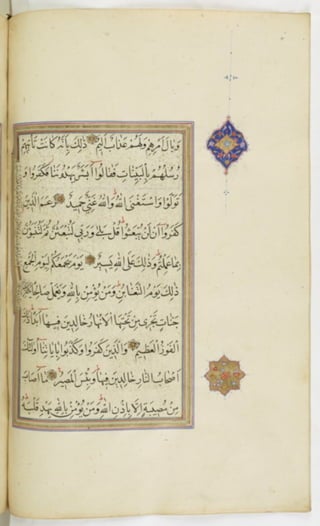 وبال امرهم ولهم عذاب اليم ذلك بانه كانت تاتيهم
رسلهم بالبينات فقالوا ابشر يهدوننا فكفروا و
تولوا واستغنى الله والله غني حميد زعم الذين
كفروا ان لن يبعثوا قل بلى وربي لتبعثن ثم لتنبؤن
بما عملتم وذلك على الله يسير يوم يجمعكم ليوم الجمع
ذلك يوم التغابن ومن يؤمن بالله ويعمل صالحا
جنات تجري من تحتها الانهار خالدين فيها ابدا ذلك
الفوز العظيم والذين كفروا وكذبوا باياتنا اولئك
اصحاب النار خالدين فيها وبئس المصير ما اصاب
من مصيبة الا باذن الله ومن يؤمن بالله يهد قلبه